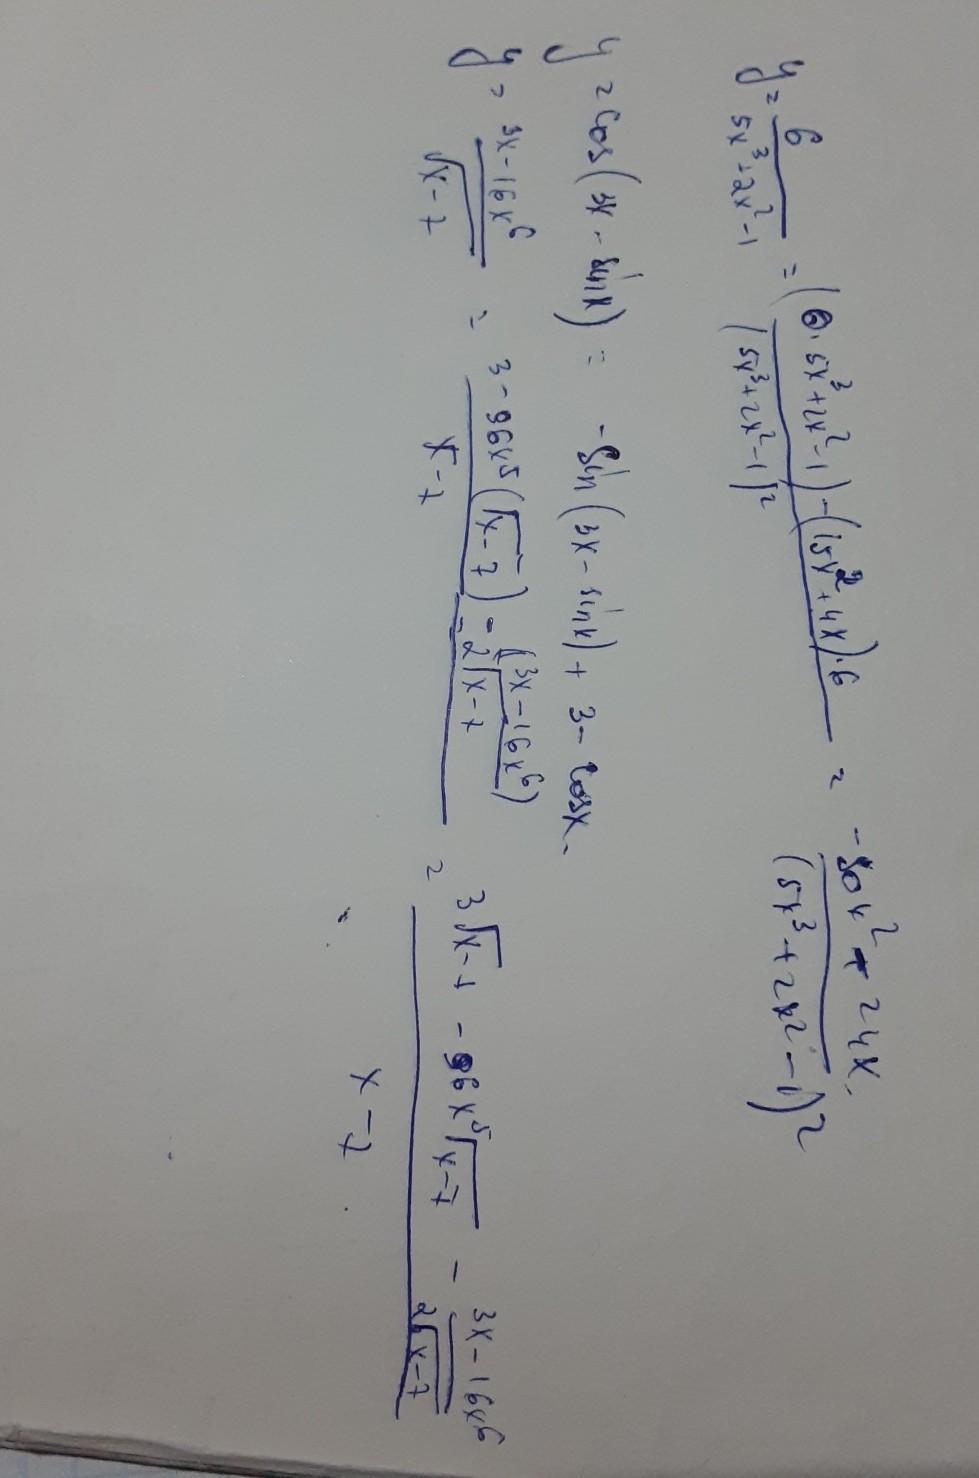 y = 6/(5x³+2x²-1) = ((0·5x³+2x²-1)-(15x²+4x)·6)/(5x³+2x²-1)² = (-90x²-24x)/(5x³+2x²-1)²
y = cos(3x - sinx) = -sin(3x - sinx) + 3 - cosx.
y = (3x-16x⁶)/√(x-7) = (3-96x⁵(√(x-7)) - (3x-16x⁶)/(2√(x-7)))/(x-7) = (3√(x-7) - 96x⁵√(x-7) - (3x-16x⁶)/(2√(x-7)))/(x-7)